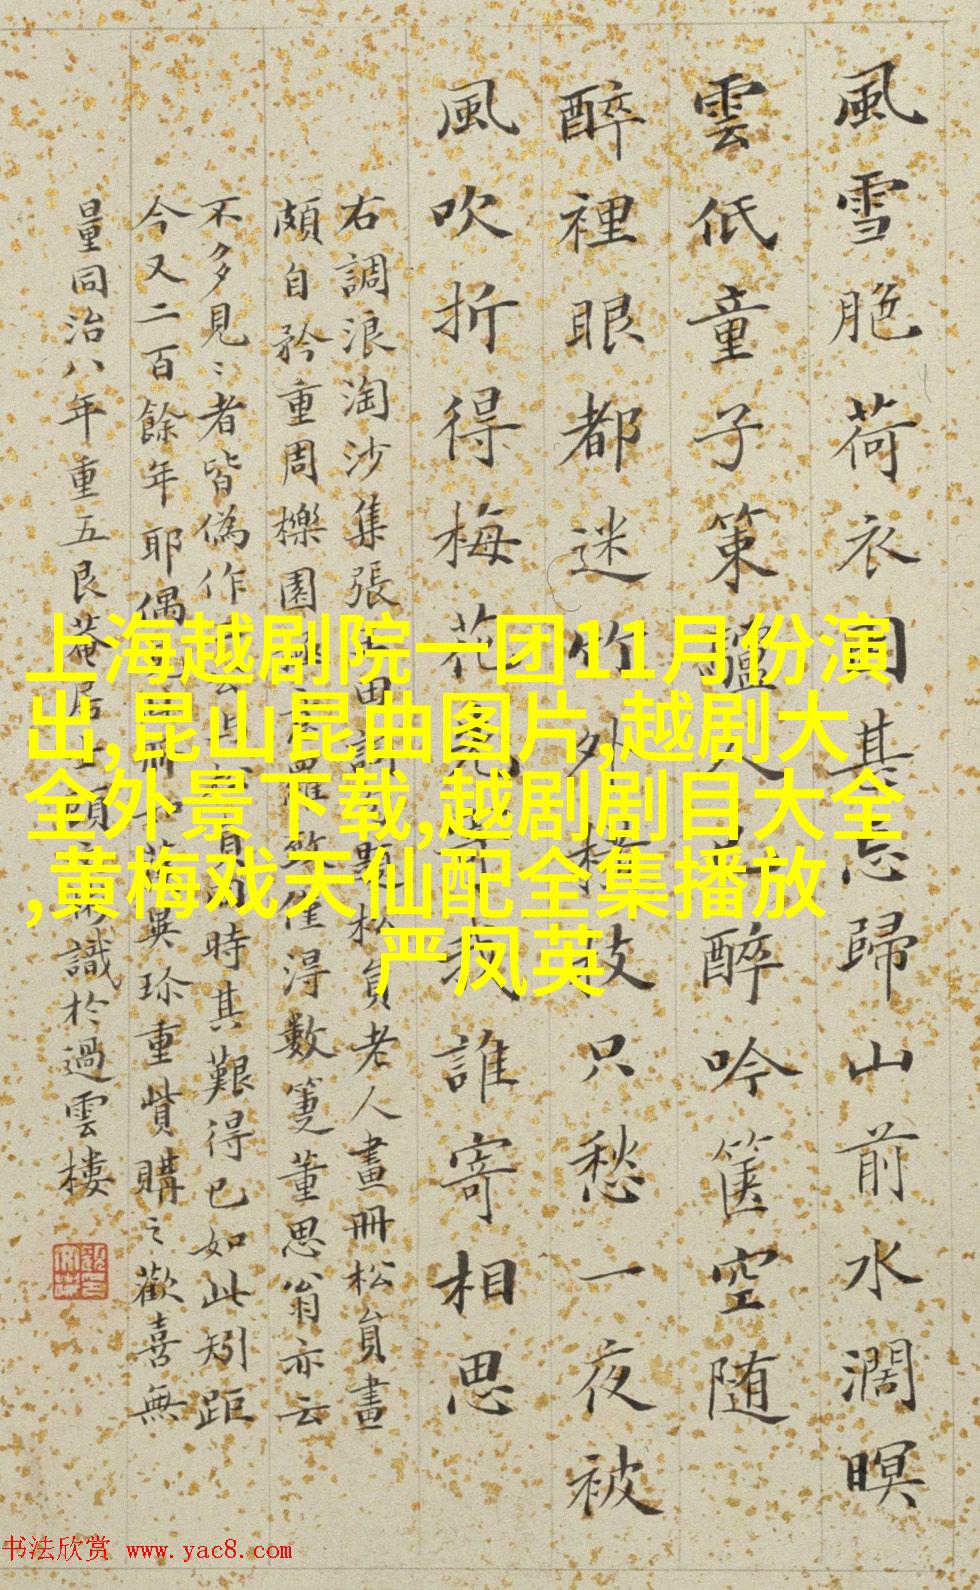 風雪脃荷衣忘歸山前水濶暝
雲低童子策人醉吟篋空随
醉裡眼都迷竹外枝只愁一夜被
風吹折得梅花我誰寄相思
右調浪淘沙集張田詞題松員老人畫冊松員畫
頗自矜重周櫟園羅僅得數箑董思翁亦云
不多見〻者皆偽作時其艱得已如此矧距
今又二百餘年耶偶冊異珍重貲購之歡喜無
量同治八年重五艮菴居士顧識於過雲樓
上海越剧院一团11月份演
出,昆山昆曲图片,越剧大
全外景下载,越剧剧目大全
,黄梅戏天仙配全集播放
严凤英
书法欣赏 www.yac8.com